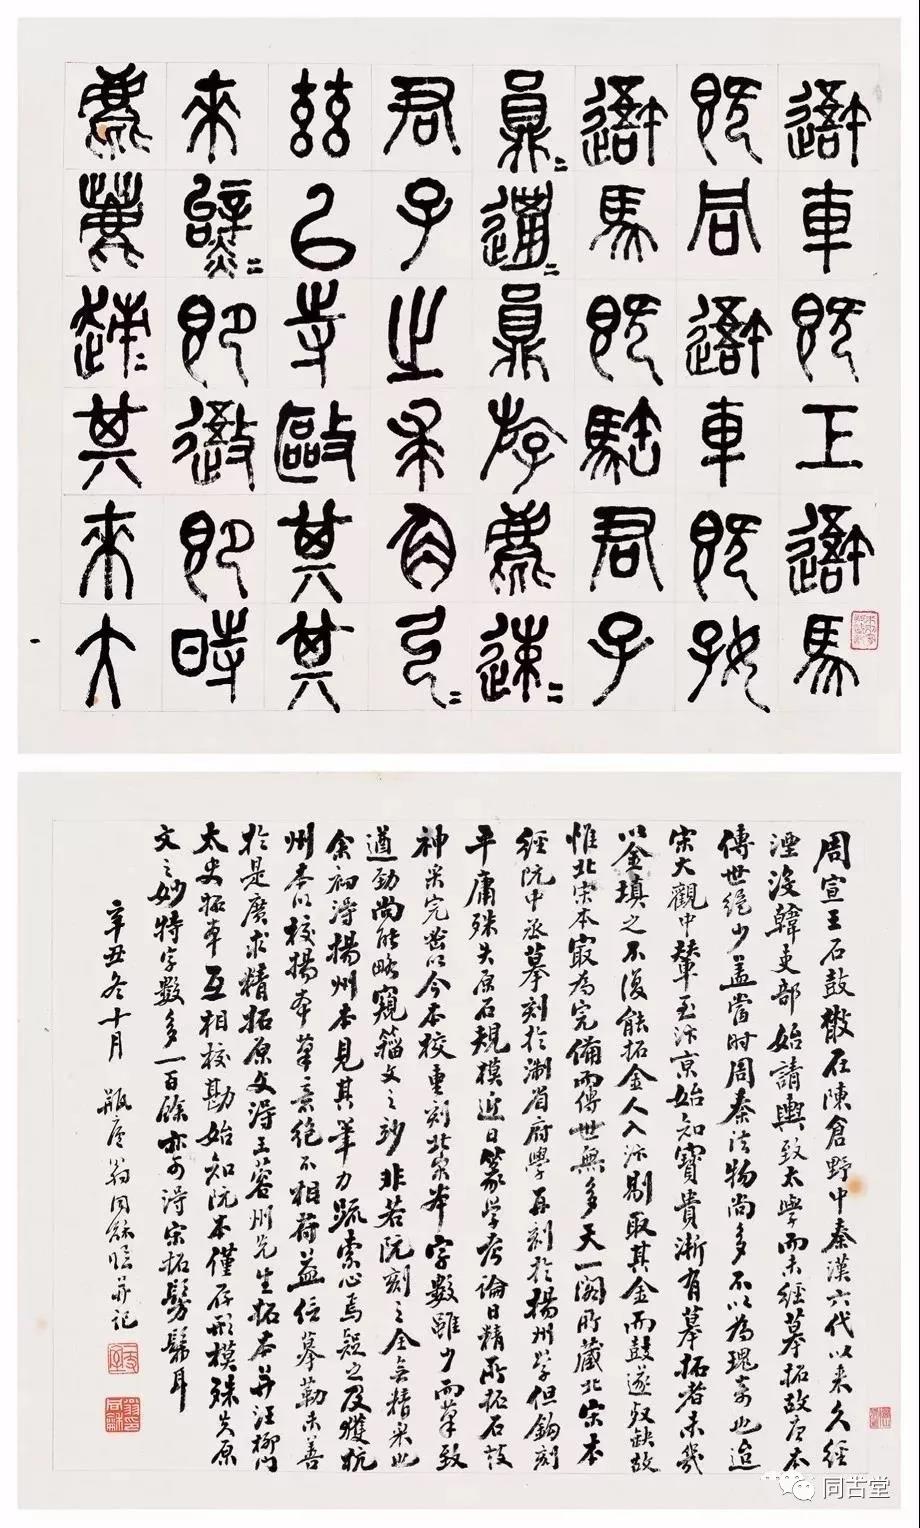 䢒車既工䢒馬
既同䢒車既好
䢒馬既君子
員=邋=員斿麀速=
君子之求弓=
茲以寺敺其其
來即即時
麀速=其來大
周宣王石鼓散在陳倉野中秦漢六代以來久經
湮沒韓吏部始請輿致太學而未經摹拓故唐本
傳世絕少蓋當時周秦法物尚多不以為瑰奇也迨
宋大觀中輦至汴京始知寶貴漸有摹拓者未幾
以金填之不復能拓金人入汴剔取其金而鼓遂殘缺故
惟北宋本最為完備而傳世無多天一閣所藏北宋本
經阮中丞摹刻於浙省府學再刻於揚州學但鈎刻
平庸殊失原石規模近日篆學考論日精所拓石鼓
神采完密以今本校重刻北宋本字數雖少而筆致
遒勁尚能略窺籀文之妙非若阮刻之全無精采也
余初得揚州本見其筆力疏索心焉疑之及獲杭
州本以校揚本筆意絕不相符益信摹勒未善
於是廣求精拓原文得王蓉州先生拓本并汪柳門
太史拓本互相校勘始知阮本僅存形模殊失原
文之妙特字數多一百餘亦可得宋拓髣髴耳
辛丑冬十月瓶廬翁同龢臨并記
翁同龢印
同古堂